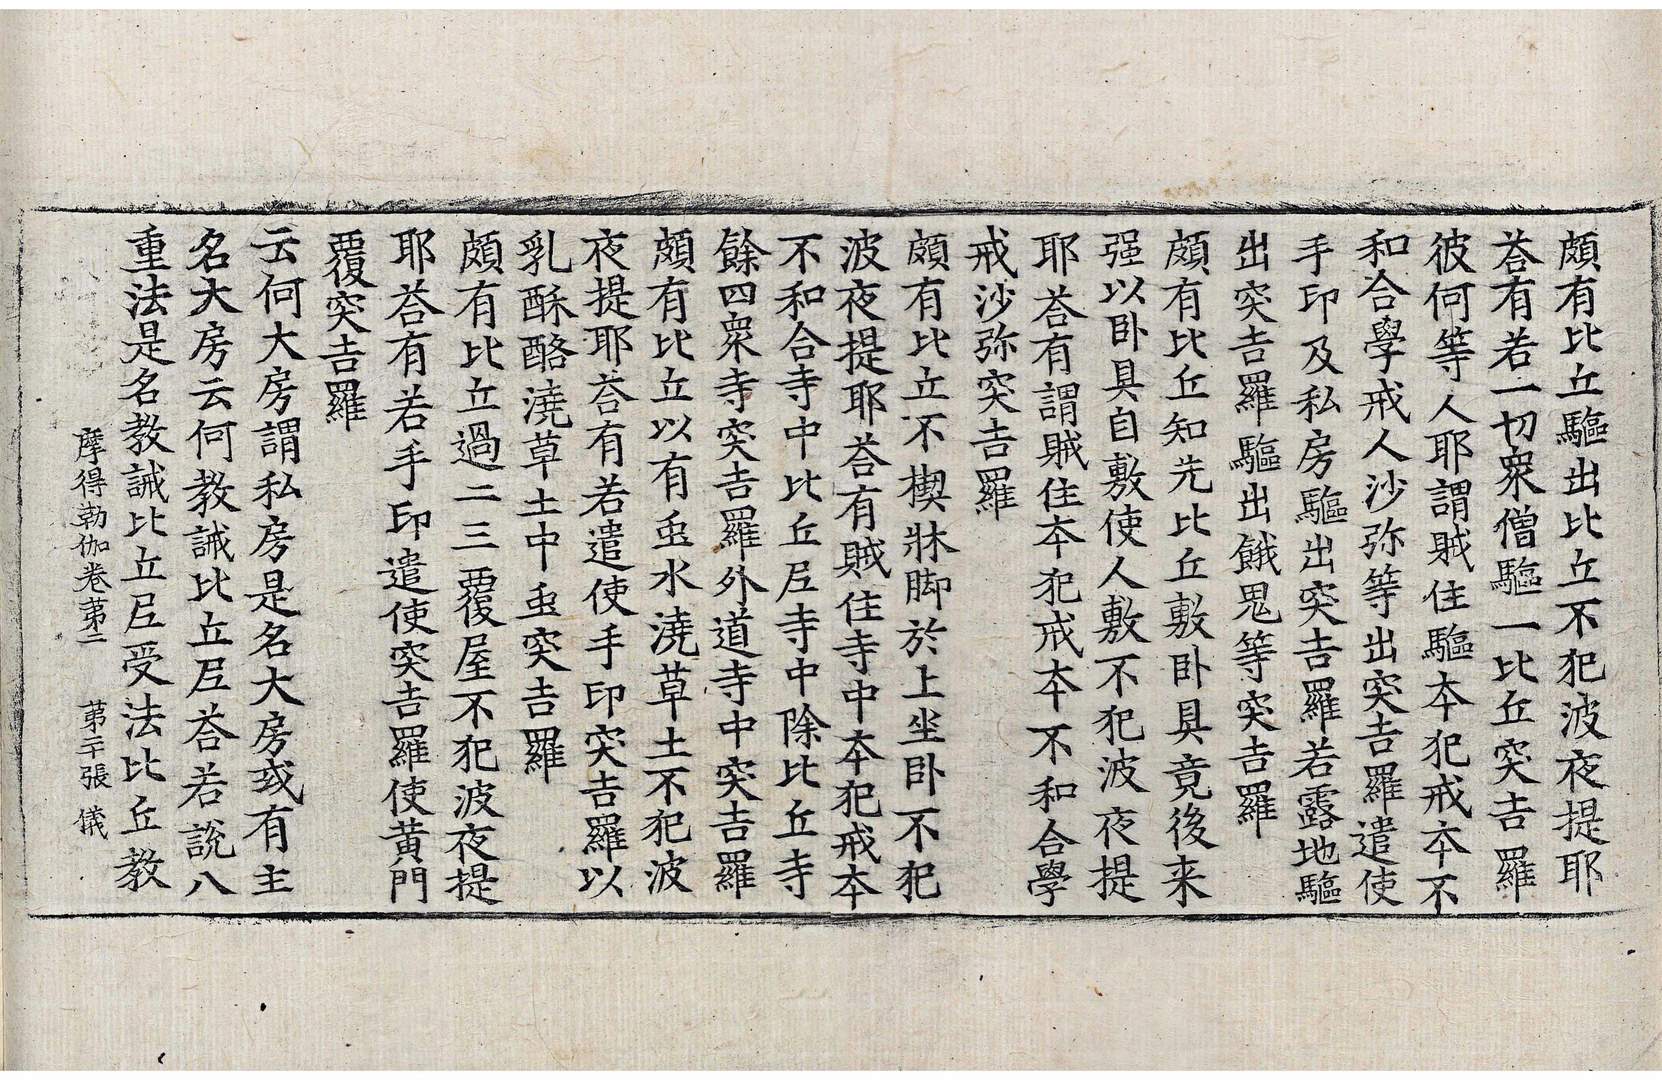 頗有比丘驅出比丘不犯波夜提耶
荅有若一切衆僧驅一比丘突吉羅
彼何等人耶謂賊住驅本犯戒本不
和合學戒人沙弥等出突吉羅遣使
手印及私房驅出突吉羅若露地驅
出突吉羅驅出餓鬼等突吉羅
頗有比丘知先比丘敷卧具竟後来
强以卧具自敷使人敷不犯波夜提
耶荅有謂賊住本犯戒本不和合學
戒沙弥突吉羅
頗有比丘不楔牀脚於上坐卧不犯
波夜提耶荅有賊住寺中本犯戒本
不和合寺中比丘尼寺中除比丘寺
餘四衆寺突吉羅外道寺中突吉羅
頗有比丘以有虫水澆草土不犯波
夜提耶荅有若遣使手印突吉羅以
乳酥酪澆草土中虫突吉羅
頗有比丘過二三覆屋不犯波夜提
耶荅有若手印遣使突吉羅使黃門
覆突吉羅
云何大房謂私房是名大房或有主
名大房云何教誡比丘尼荅若說八
重法是名教誡比丘尼受法比丘教
摩得勒伽卷第二 第二十張 儀